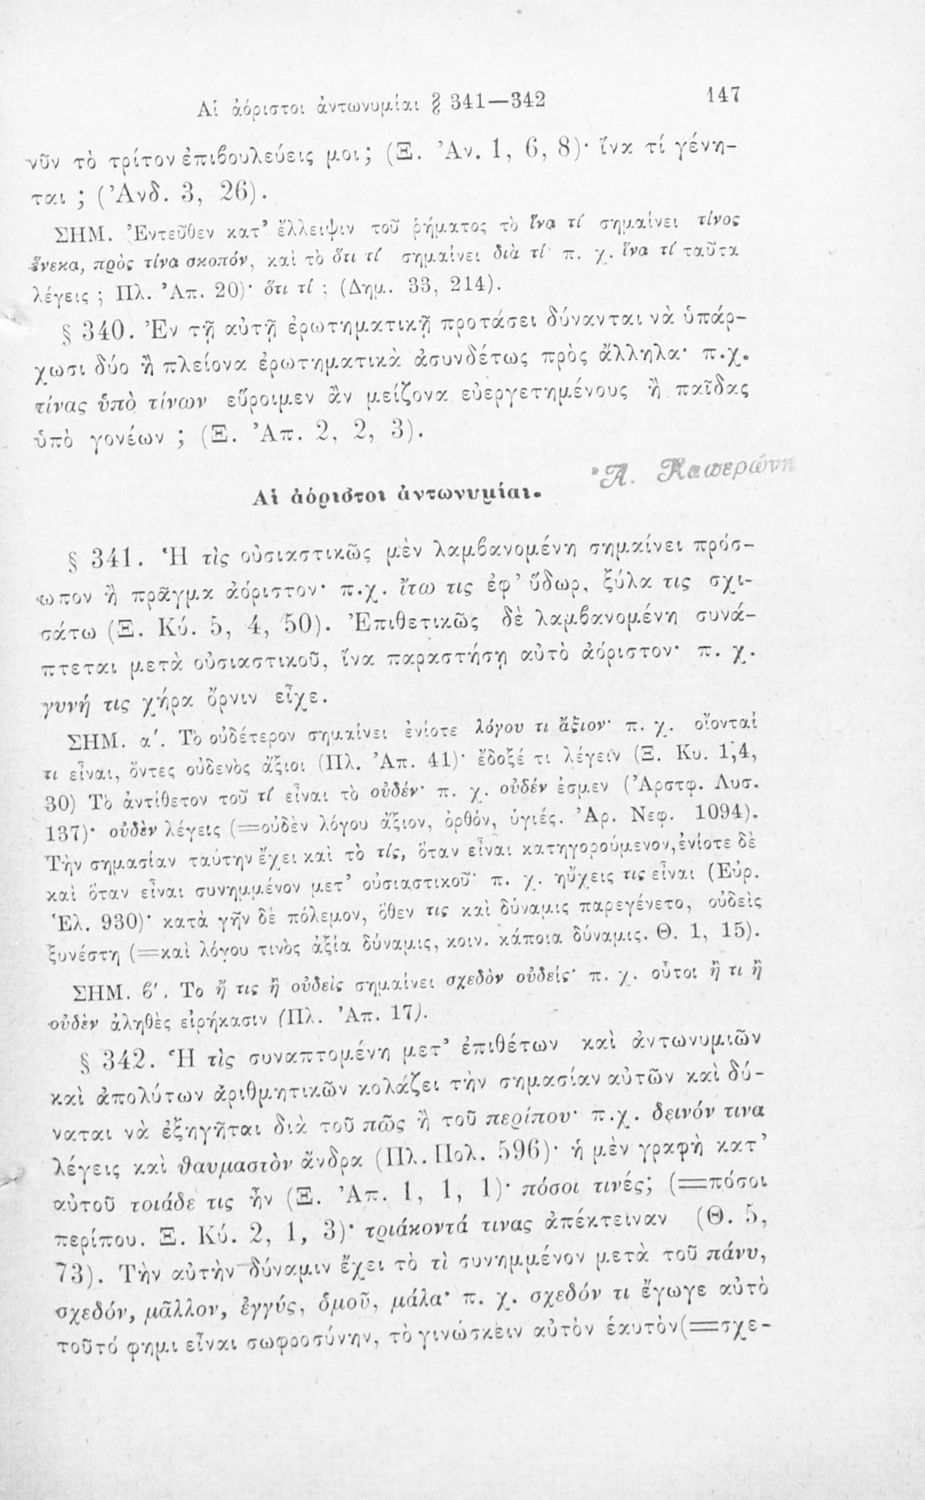 Αἱ ἀόριστοι ἀντωνυμίαι § 341—342 147
νῦν τὸ τρίτον ἐπιβουλεύεις μοι; (Ξ. Ἀν. 1, 6, 8)· ἵνα τί γένη-
ται ; (Ἀνδ. 3, 26).
ΣΗΜ. Ἐντεῦθεν κατ' ἔλλειψιν τοῦ ῥήματος τὸ ἵνα τί σημαίνει τίνος
ἕνεκα, πρὸς τίνα σκοπόν, καὶ τὸ ὅτι τί σημαίνει διὰ τί· π. χ. ἵνα τί ταῦτα
λέγεις ; Πλ. Ἀπ. 20)· ὅτι τί ; (Δημ. 33, 214).
§ 340. Ἐν τῇ αὐτῇ ἐρωτηματικῇ προτάσει δύνανται νὰ ὑπάρ-
χωσι δύο ἢ πλείονα ἐρωτηματικὰ ἀσυνδέτως πρὸς ἄλληλα· π.χ.
τίνας ὑπὸ τίνων εὕροιμεν ἂν μείζονα εὐεργετημένους ἢ παῖδας
ὑπὸ γονέων ; (Ξ. Ἀπ. 2, 2, 3).
Αἱ ἀόριστοι ἀντωνυμίαι.
§ 341. Ἡ τὶς οὐσιαστικῶς μὲν λαμβανομένη σημαίνει πρόσ-
ωπον ἢ πρᾶγμα ἀόριστον· π.χ. ἴτω τις ἐφ' ὕδωρ, ξύλα τις σχι-
σάτω (Ξ. Κύ. 5, 4, 50). Ἐπιθετικῶς δὲ λαμβανομένη συνά-
πτεται μετὰ οὐσιαστικοῦ, ἵνα παραστήσῃ αὐτὸ ἀόριστον· π. χ.
γυνή τις χήρα ὄρνιν εἶχε.
ΣΗΜ. α΄. Τὸ οὐδέτερον σημαίνει ἐνίοτε λόγου τι ἄξιον· π. χ. οἴονταί
τι εἶναι, ὄντες οὐδενὸς ἄξιοι (Πλ. Ἀπ. 41)· ἔδοξέ τι λέγειν (Ξ. Κυ. 1,4,
30) Τὸ ἀντίθετον τοῦ τί εἶναι τὸ οὐδέν· π. χ. οὐδέν ἐσμεν (Ἀρστφ. Λυσ.
137)· οὐδὲν λέγεις (=οὐδὲν λόγου ἄξιον, ὀρθόν, ὑγιές. Ἀρ. Νεφ. 1094).
Τὴν σημασίαν ταύτην ἔχει καὶ τὸ τίς, ὅταν εἶναι κατηγορούμενον, ἐνίοτε δὲ
καὶ ὅταν εἶναι συνημμένον μετ' οὐσιαστικοῦ· π. χ. ηὔχεις τις εἶναι (Εὐρ.
Ἑλ. 930)· κατὰ γῆν δὲ πόλεμον, ὅθεν τις καὶ δύναμις παρεγένετο, οὐδεὶς
ξυνέστη (=καὶ λόγου τινὸς ἀξία δύναμις, κοιν. κάποια δύναμις. Θ. 1, 15).
ΣΗΜ. β΄. Το ἤ τις ἢ οὐδεὶς σημαίνει σχεδὸν οὐδείς· π. χ. οὗτοι ἤ τι ἢ
οὐδὲν ἀληθὲς εἰρήκασιν (Πλ. Ἀπ. 17).
§ 342. Ἡ τὶς συναπτομένη μετ' ἐπιθέτων καὶ ἀντωνυμιῶν
καὶ ἀπολύτων ἀριθμητικῶν κολάζει τὴν σημασίαν αὐτῶν καὶ δύ-
ναται νὰ ἐξηγῆται διὰ τοῦ πῶς ἢ τοῦ περίπου· π.χ. δεινόν τινα
λέγεις καὶ θαυμαστὸν ἄνδρα (Πλ. Πολ. 596)· ἡ μὲν γραφὴ κατ'
αὐτοῦ τοιάδε τις ἦν (Ξ. Ἀπ. 1, 1, 1)· πόσοι τινές; (=πόσοι
περίπου. Ξ. Κύ. 2, 1, 3)· τριάκοντά τινας ἀπέκτειναν (Θ. 5,
73). Τὴν αὐτὴν δύναμιν ἔχει τὸ τὶ συνημμένον μετὰ τοῦ πάνυ,
σχεδόν, μᾶλλον, ἐγγύς, ὁμοῦ, μάλα· π. χ. σχεδόν τι ἔγωγε αὐτὸ
τοῦτό φημι εἶναι σωφροσύνην, τὸ γινώσκειν αὐτὸν ἑαυτὸν (=σχε-